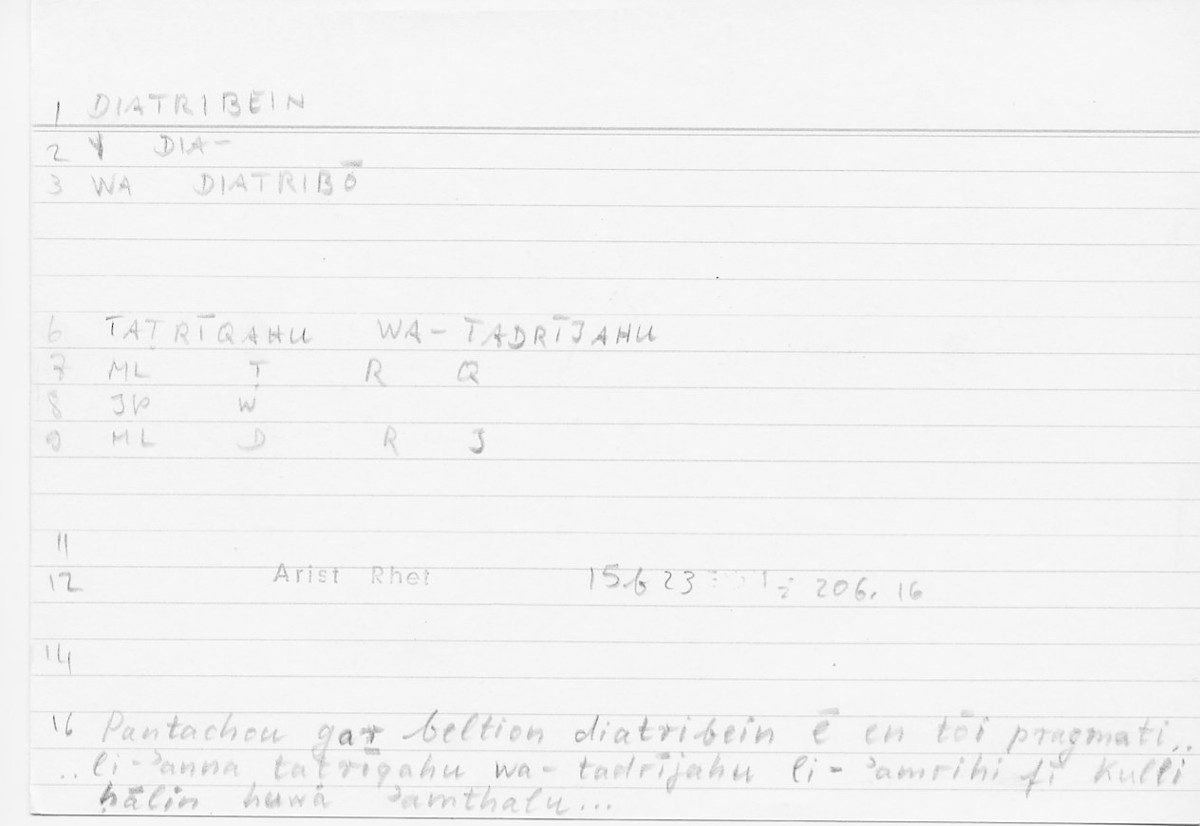 1 DIATRIBEIN
2 V DIA-
3 WA DIATRIBŌ
6 TAṬRĪQAHU WA-TADRĪJAHU
7 ML Ṭ R Q
8 JP W
9 ML D R J
11
12 Arist Rhet 15b23 ; 206, 16
14
16 Pantachou gar beltion diatribein ē en tōi pragmati..
..li-ʾanna taṭrīqahu wa-tadrījahu li-ʾamrihi fī kulli
ḥālin huwa ʾamthalu...